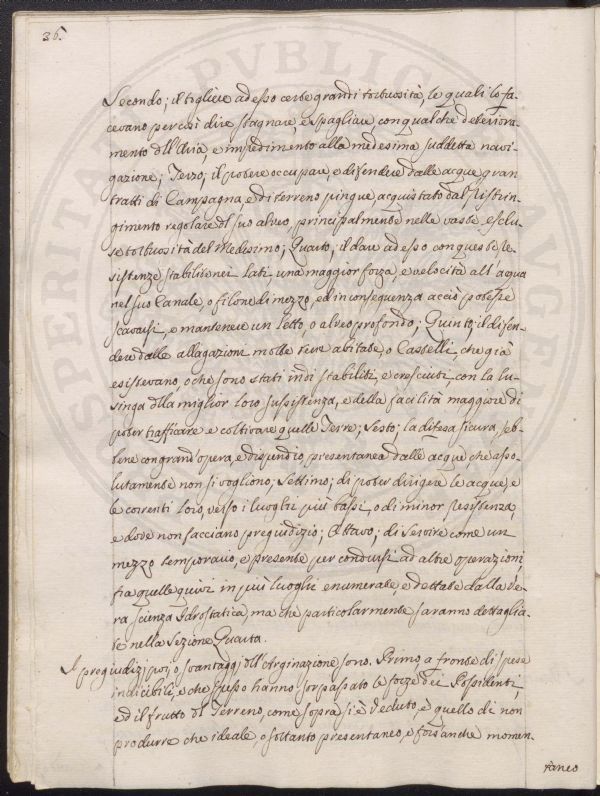 36.
Secondo; il togliere ad esso certe grandi tortuosità, le quali lo fa-
cevano per così dire stagnare, e spagliare con qualche deteriora-
mento dll'Aria, e impedimento alla medesima suddetta navi-
gazione; Terzo; il potere occupare, e difendere dalle acque gran
tratti di Campagna, e di terreno pingue acquistato dal ristrin-
gimento regolare dl suo alveo, principalmente nelle vaste, e sclu-
se tortuosità del Medesimo; Quarto, il dare ad esso con queste re-
sistenze stabilite nei Lati una maggior forza, e velocità all'acqua
nel suo Canale, o filone di mezzo, ed in conseguenza acciò potesse
scavarsi, e mantenere un Letto, o alveo profondo; Quinto, il difen-
dere dalle allagazioni molte terre abitate, o Castelli, che già
esistevano, o che sono stati indi stabiliti, e cresciuti, con la lu-
singa dlla miglior loro sussistenza, e della facilità maggiore di
poter trafficare e coltivare quelle Terre; Sesto; la difesa sicura, seb-
bene con grand'opera, e dispendio, presentanea dalle acque, che asso-
lutamente non si vogliono; Settimo; di poter dirigere le acque, e
le correnti loro, verso i luoghi più bassi, o di minor resistenza,
e dove non facciano pregiudizio; Ottavo; di Servire come un
mezzo temporario, e presente per condursi ad altre operazioni,
fra quelle quivi in più luoghi enumerate, e dettate dalla ve-
ra scienza Idrostatica, ma che particolarmente saranno dettaglia-
te nella Sezione Quarta.
I pregiudizj poi, o svantaggj dll'Arginazione sono. Primo, a fronte di spese
indicibili, e che spesso hanno sorpassato le forze dei Possidenti,
ed il frutto dl Terreno, come sopra si è veduto, e quello di non
produrre che ideale, o soltanto presentaneo, e fors'anche momen-
taneo